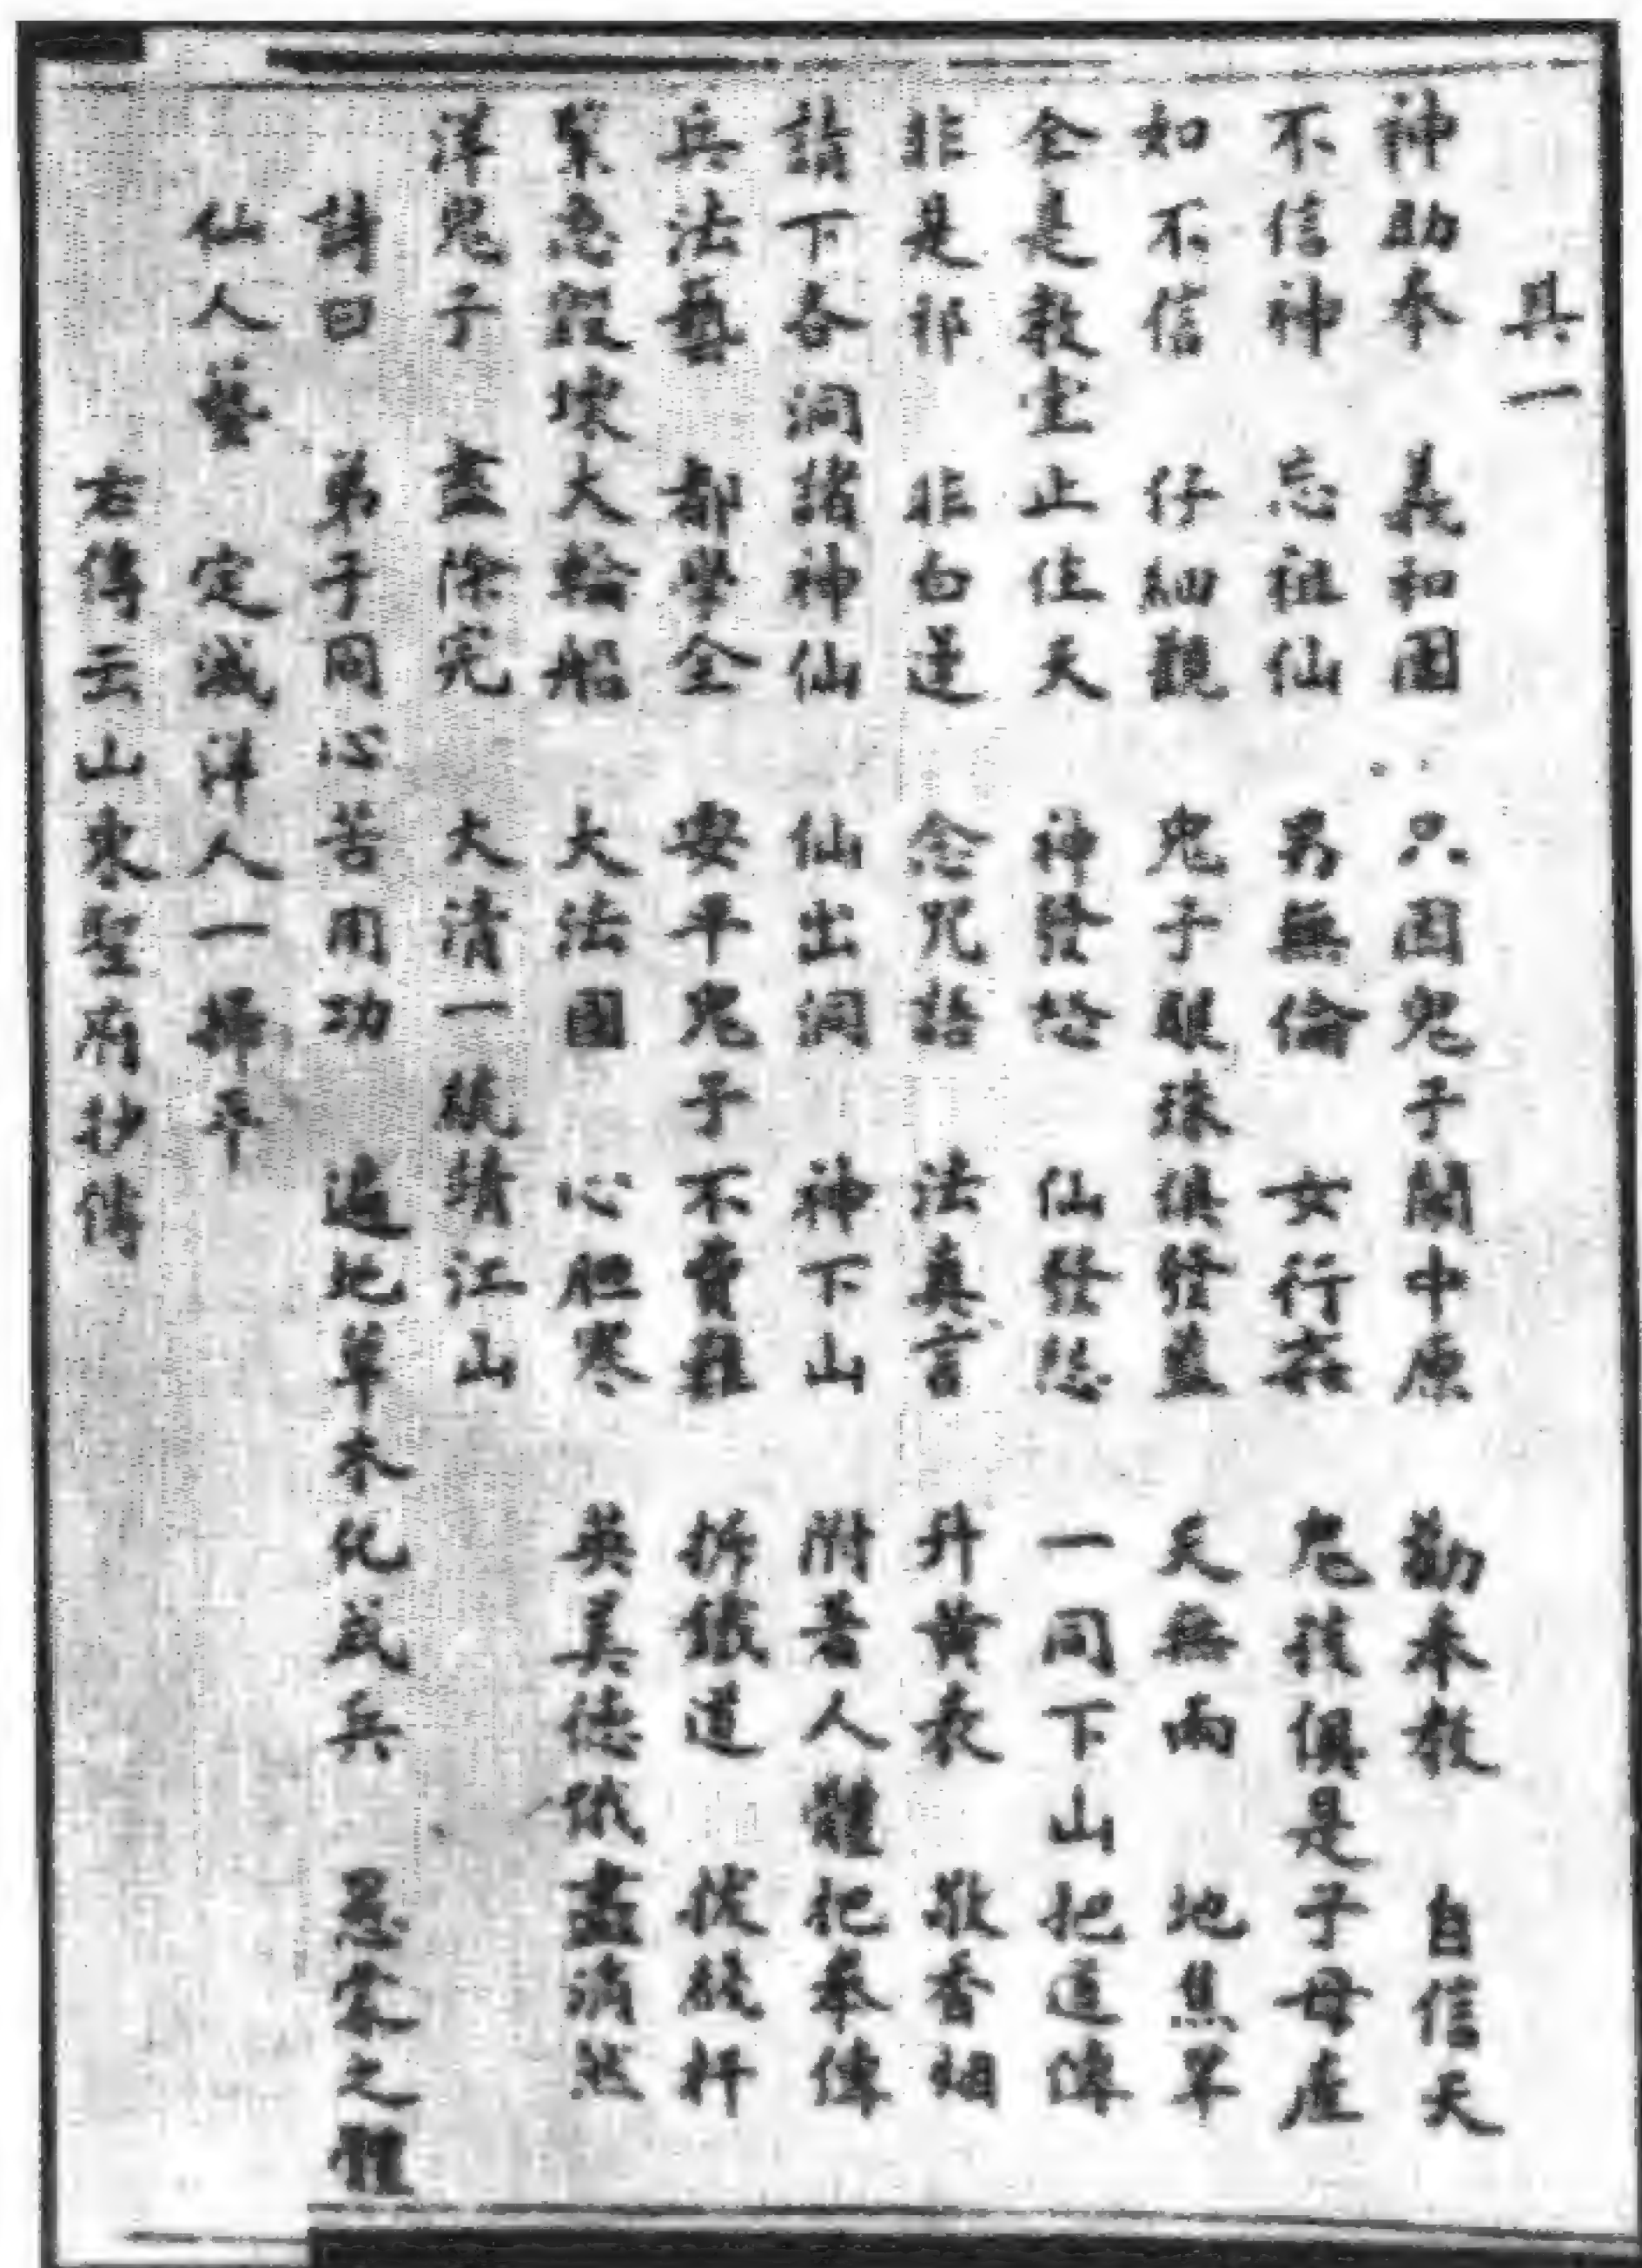 其一
神助拳 義和團 只因鬼子鬧中原 勸奉教 自信天
不信神 忘祖仙 男無倫 女行姦 鬼孩俱是子母產
如不信 仔細觀 鬼子眼珠俱發藍 天無雨 地焦旱
全是教堂止住天 神發怒 仙發怨 一同下山把道傳
非是邪 非白蓮 念咒語 法真言 升黃表 敬香烟
請下各洞諸神仙 仙出洞 神下山 附著人體把拳傳
兵法藝 都學全 要平鬼子不費難 拆鐵道 拔線杆
緊急毀壞大輪船 大法國 心胆寒 英美德俄盡消然
洋鬼子 盡除完 大清一統靖江山
詩曰 弟子同心苦用功 遍地草木化成兵 愚蒙之體
仙人藝 定滅洋人一掃平
右傳云山東聖府抄傳